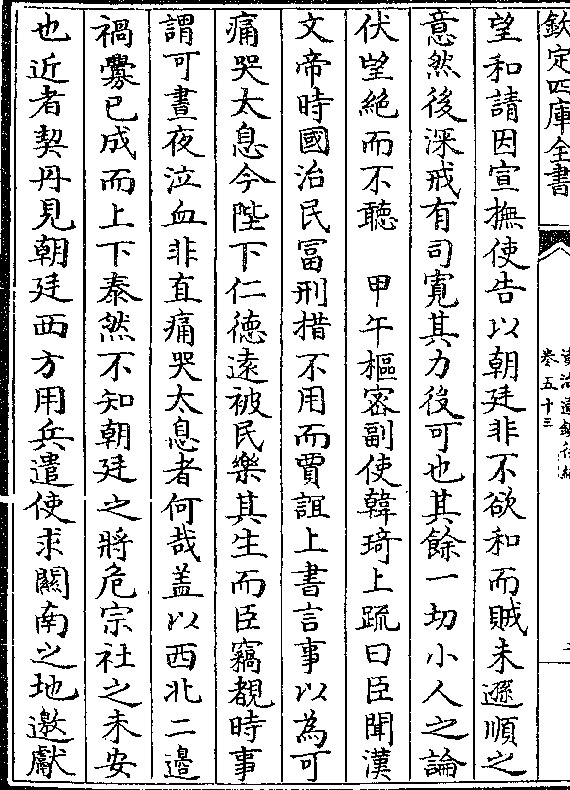 欽定四庫全書
卷五十三
望和請因宣撫使告以朝廷非不欲和而賊未遜順之
意然後深戒有司寛其力役可也其餘一切小人之論
伏望絶而不聽　甲午樞密副使韓琦上疏曰臣聞漢
文帝時國治民富刑措不用而賈誼上書言事以為可
痛哭太息今陛下仁徳遠被民樂其生而臣竊覩時事
謂可晝夜泣血非直痛哭太息者何哉盖以西北二邊
禍釁已成而上下泰然不知朝廷之將危宗社之未安
也近者契丹見朝廷西方用兵遣使求關南之地邀獻